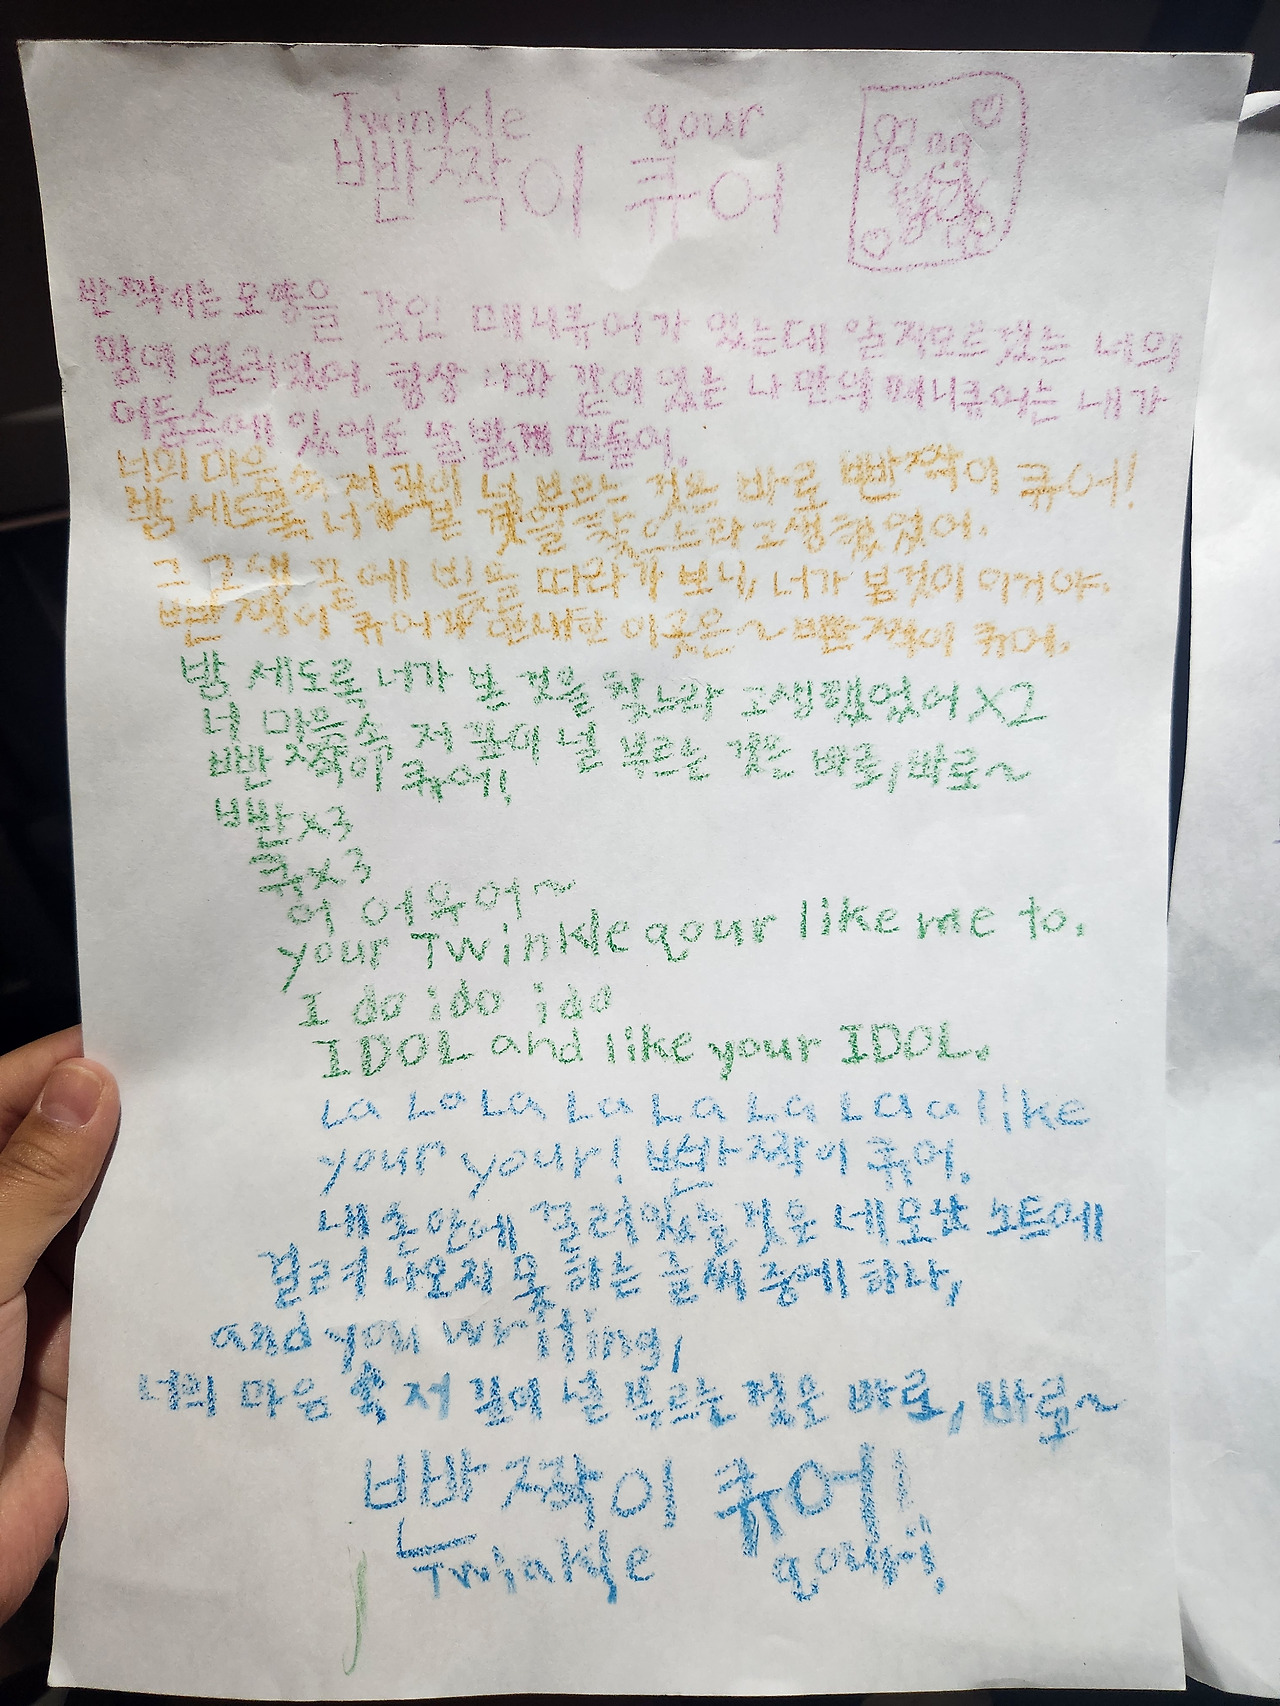 Twinkle qour
빤짝이 큐어
반짝이는 모양을 갖인 매니큐어가 있는데 알지모르겠는 너의
맘에 열려있어. 항상 나와 같이 있는 나만의 매니큐어는 내가
어둠속에 있어도 날 밝게 만들어.
너의 마음 속 저 깊이 널 부르는 것은 바로 빤짝이 큐어!
밤 세도록 너가 본 것을 찾으느라 고생했었어.
그 고생 끝에 빛을 따라가 보니, 너가 본것이 이거야.
빤짝이 큐어가 안내한 이곳은~ 빤짝이 큐어.
밤 세도록 너가 본 것을 찾느라 고생했었어 X2
너 마음속 저 깊이 널 부르는 것은 바로, 바로~
빤짝이 큐어!
빤x3
큐x3
어 어우어~
your Twinkle qour like me to.
I do i do i do
IDOL and like your IDOL.
La La La La La La La a like
your your! 빤짝이 큐어.
내 손 안에 걸려있는 것은 네모난 노트에
걸려 나오지 못 하는 글씨 중에 하나,
and you writing,
너의 마음 속 저 깊이 널 부르는 것은 바로, 바로~
빤짝이 큐어!
Twinkle qour!